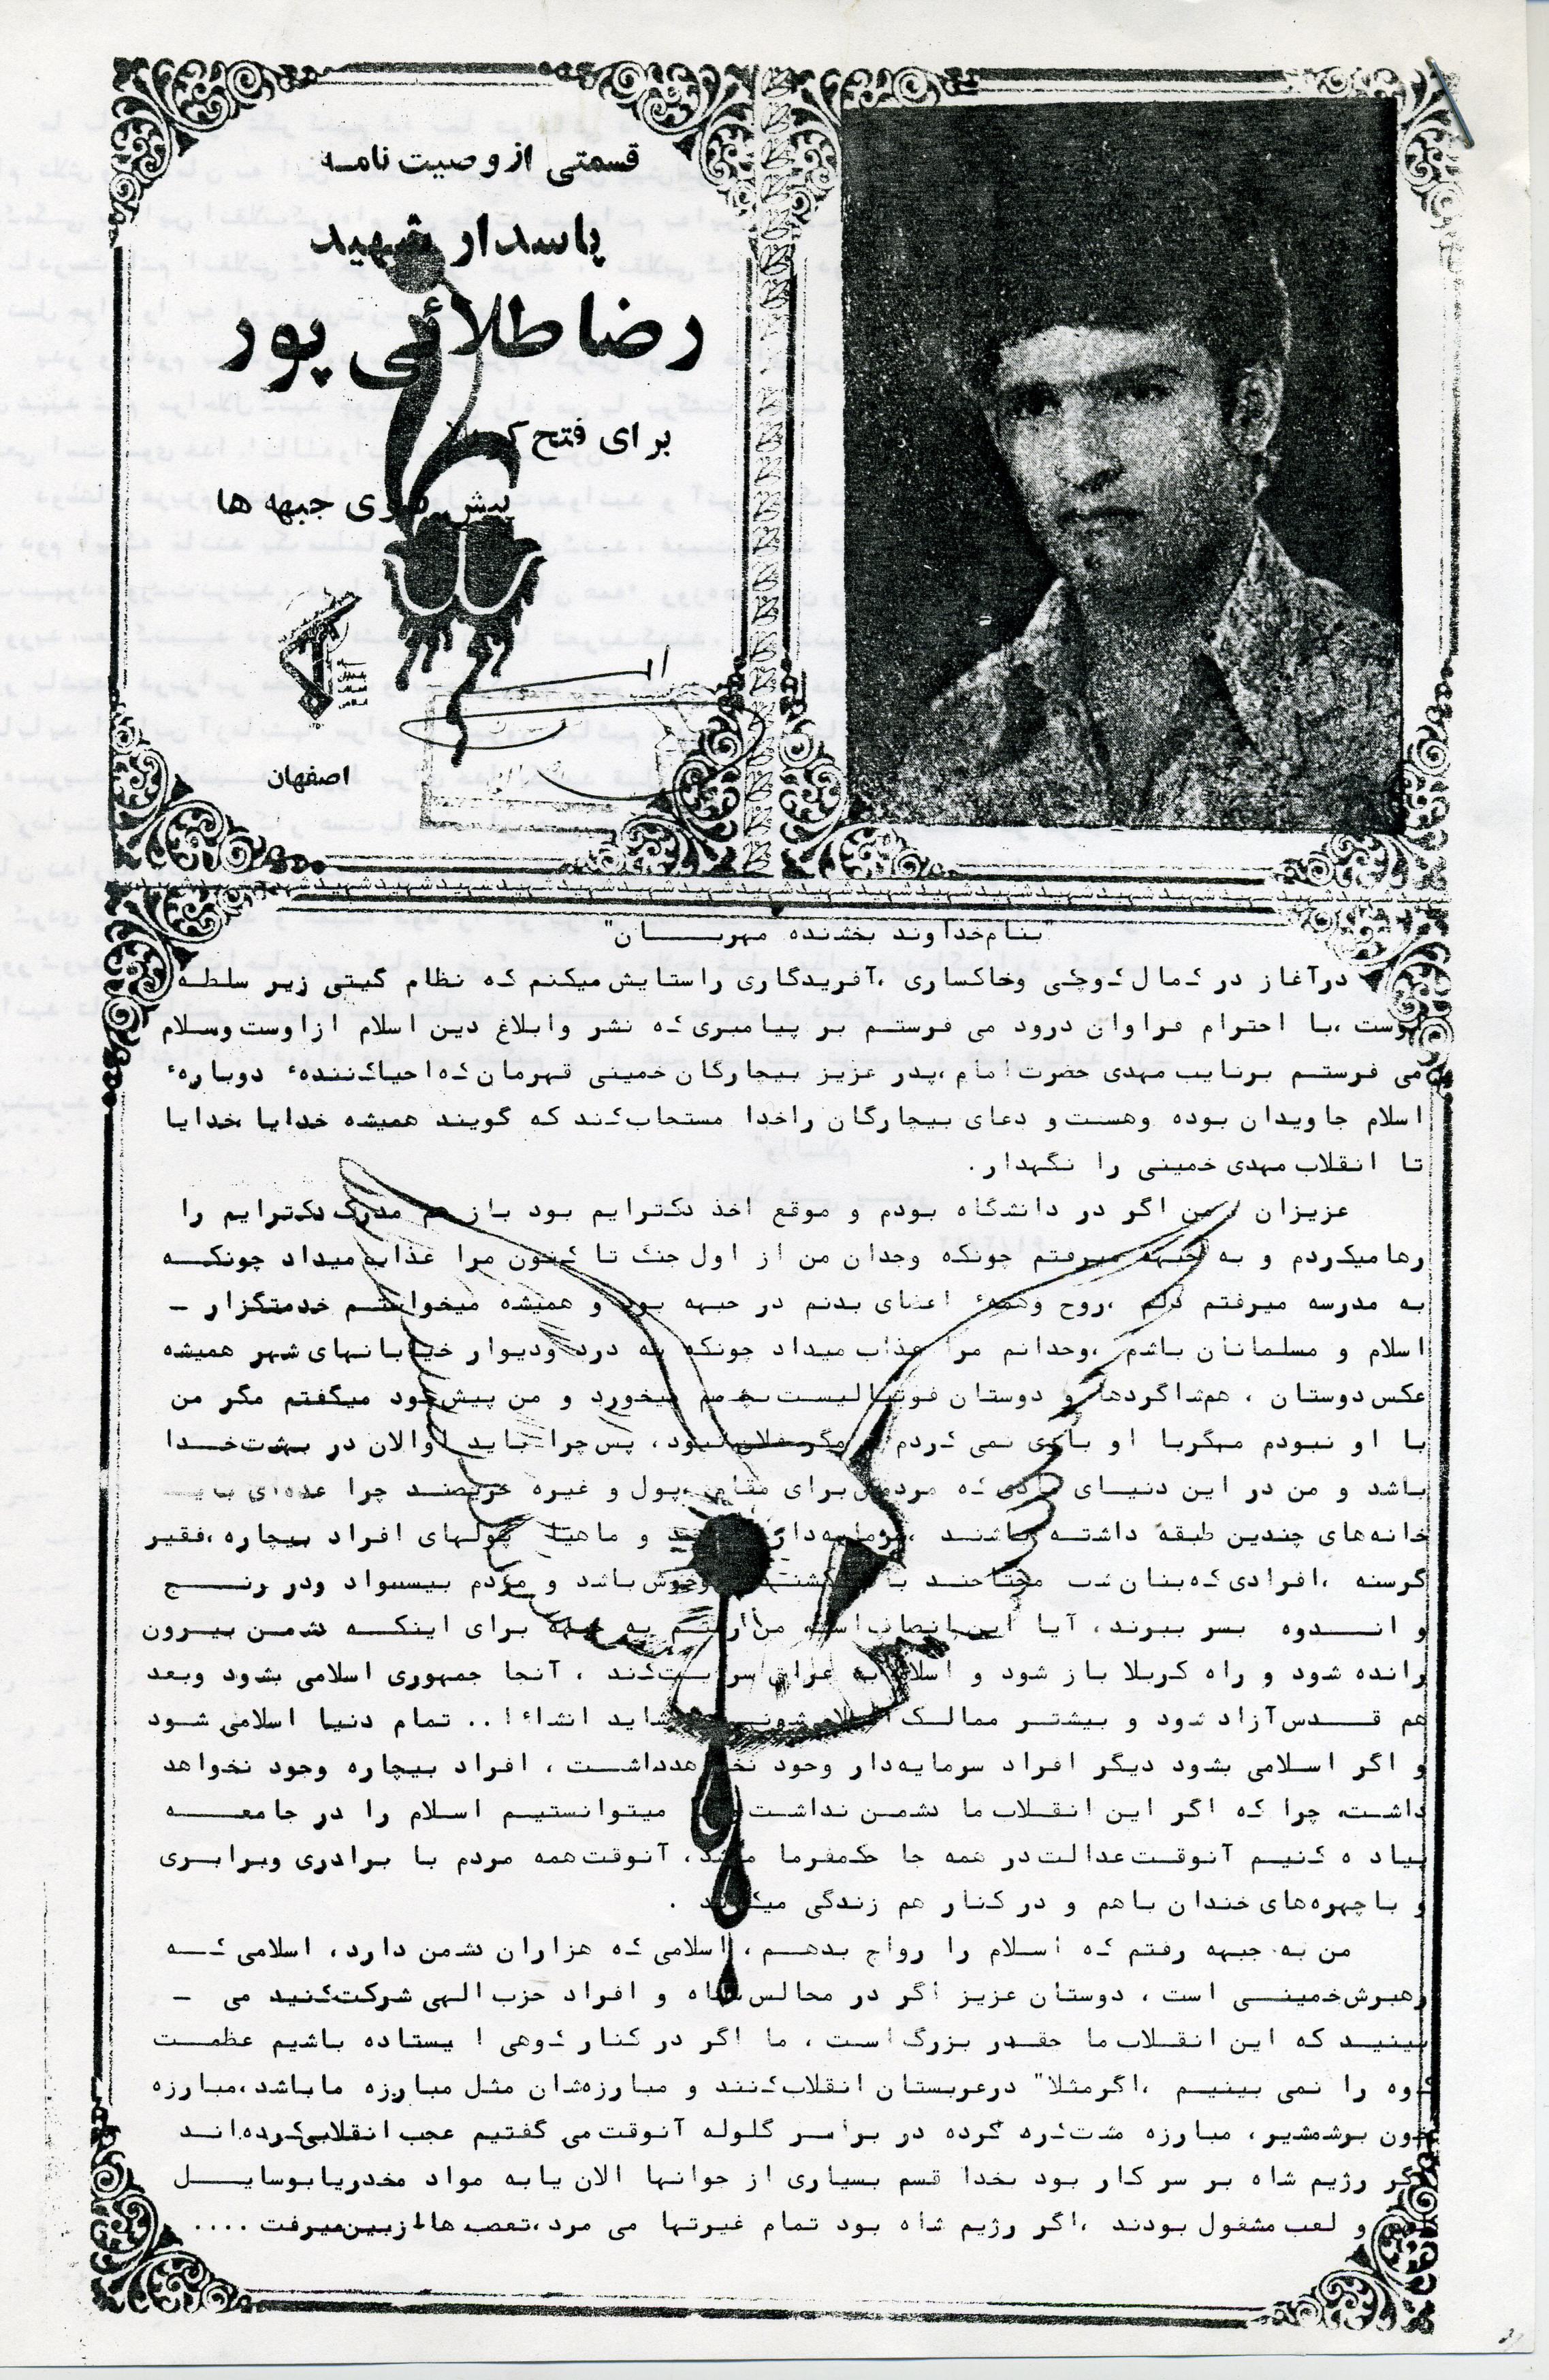 قسمتی از وصیت نامه
پاسدار شهید
رضا طلائی پور
برای فتح کربلا
پیش بسوی جبهه ها
سپاه پاسداران انقلاب اسلامی
اصفهان
شهید شهید شهید شهید شهید شهید شهید شهید شهید شهید شهید شهید شهید شهید شهید شهید شهید شهید
"بنام خداوند بخشنده مهربان"
درآغاز در کمال کوچکی وخاکساری ،آفریدگاری راستایش میکنم که نظام گیتی زیر سلطه
اوست ،با احترام فراوان درود می فرستم بر پیامبری که نشر وابلاغ دین اسلام ازاوست وسلام
می فرستم برنایب مهدی حضرت امام ،پدر عزیز بیچارگان خمینی قهرمان که احیاکنندهٔ دوبارهٔ
اسلام جاویدان بوده وهست و دعای بیچارگان راخدا مستجاب کند که گویند همیشه خدایا خدایا
تا انقلاب مهدی خمینی را نگهدار.
عزیزان من اگر در دانشگاه بودم و موقع اخذ دکترایم بود باز هم مدرک دکترایم را
رها میکردم و به جبهه میرفتم چونکه وجدان من از اول جنگ تا کنون مرا عذاب میداد چونکه
به مدرسه میرفتم دلم ،روح وهمهٔ اعضای بدنم در جبهه بود و همیشه میخواستم خدمتگزار -
اسلام و مسلمانان باشم ،وجدانم مرا عذاب میداد چونکه به درد ودیوار خیابانهای شهر همیشه
عکس دوستان ، هم شاگردها و دوستان فوتبالیست بچشم میخورد و من پیش خود میگفتم مگر من
با او نبودم میگربا او بازی نمی کردم مگر فلان نبود، پس چرا باید اوالان در بهشت خدا
باشد و من در این دنیای مادی که مردمش برای مقام ،پول و غیره حریصند چرا عده‌ای باید
خانه‌های چندین طبقه داشته باشند ، سرمایه‌دار و ماهیتا پولهای افراد بیچاره ،فقیر
گرسنه ،افرادی که بنان شب محتاجند وخوش باشد و مردم بیسواد ودر رنج
و اندوه بسر ببرند، آیا این انصاف است من رفتم به جبهه برای اینکه دشمن بیرون
رانده شود و راه کربلا باز شود و اسلام به عراق سرایت کند ، آنجا جمهوری اسلامی بشود وبعد
هم قدس آزاد شود و بیشتر ممالک شاید انشاءا.. تمام دنیا اسلامی شود
و اگر اسلامی بشود دیگر افراد سرمایه‌دار وجود نخواهدداشت ، افراد بیچاره وجود نخواهد
داشت، چرا که اگر این انقلاب ما دشمن نداشت میتوانستیم اسلام را در جامعه
پیاده کنیم آنوقت عدالت در همه جا حکمفرما میشد، آنوقت همه مردم با برادری وبرابری
و با چهره‌های خندان باهم و در کنار هم زندگی میکردند .
من به جبهه رفتم که اسلام را رواج بدهم ، اسلامی که هزاران دشمن دارد، اسلامی که
رهبرش خمینی است ، دوستان عزیز اگر در مجالس شاه و افراد حزب الهی شرکت کنید می -
بینید که این انقلاب ما چقدر بزرگ است ، ما اگر در کنار کوهی ایستاده باشیم عظمت
کوه را نمی بینیم ،اگرمثلا" درعربستان انقلاب کنند و مبارزه‌شان مثل مبارزه ماباشد ،مبارزه
خون برشمشیر، مبارزه مشت گره کرده در برابر گلوله آنوقت می گفتیم عجب انقلابی کرده‌اند
اگر رژیم شاه بر سر کار بود بخدا قسم بسیاری از جوانها الان یابه مواد مخدریابوسایل
و لعب مشغول بودند ،اگر رژیم شاه بود تمام غیرتها می مرد ،تعصب ها ازبین میرفت ....